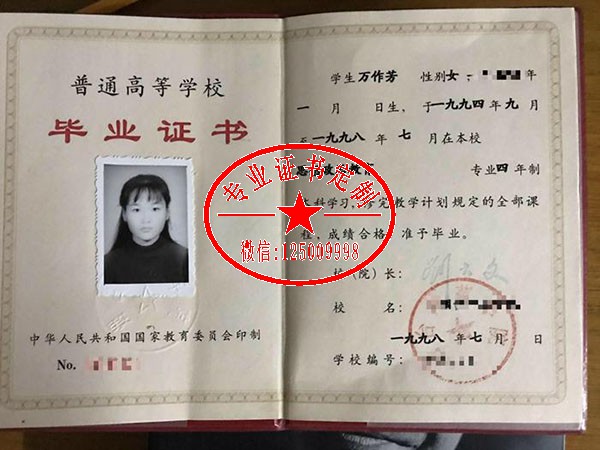 普通高等学校
毕业证书
中华人民共和国国家教育委员会印制
No.
学生 万作芳 性别 女 年
一 月 日生,于一九九四年九月
至一九九八 年 七 月在本校
教育 专业 四 年制
本科学习,修完教学计划规定的全部课
程、成绩合格,准予毕业。
校(院)长:
校 名:
一九九八 年 七 月 日
学校编号:
专业证书定制
微信:125009998